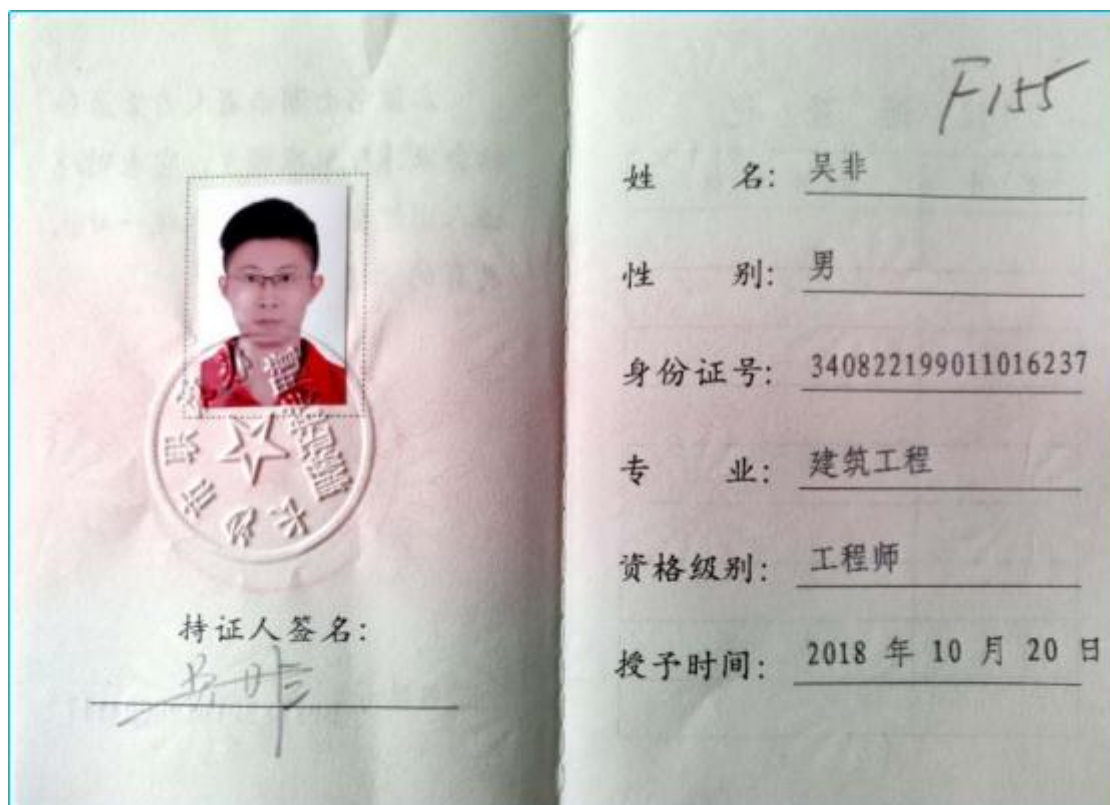 持证人签名:
吴非
F155
姓 名: 吴非
性 别: 男
身份证号: 340822199011016237
专 业: 建筑工程
资格级别: 工程师
授予时间: 2018 年 10 月 20 日